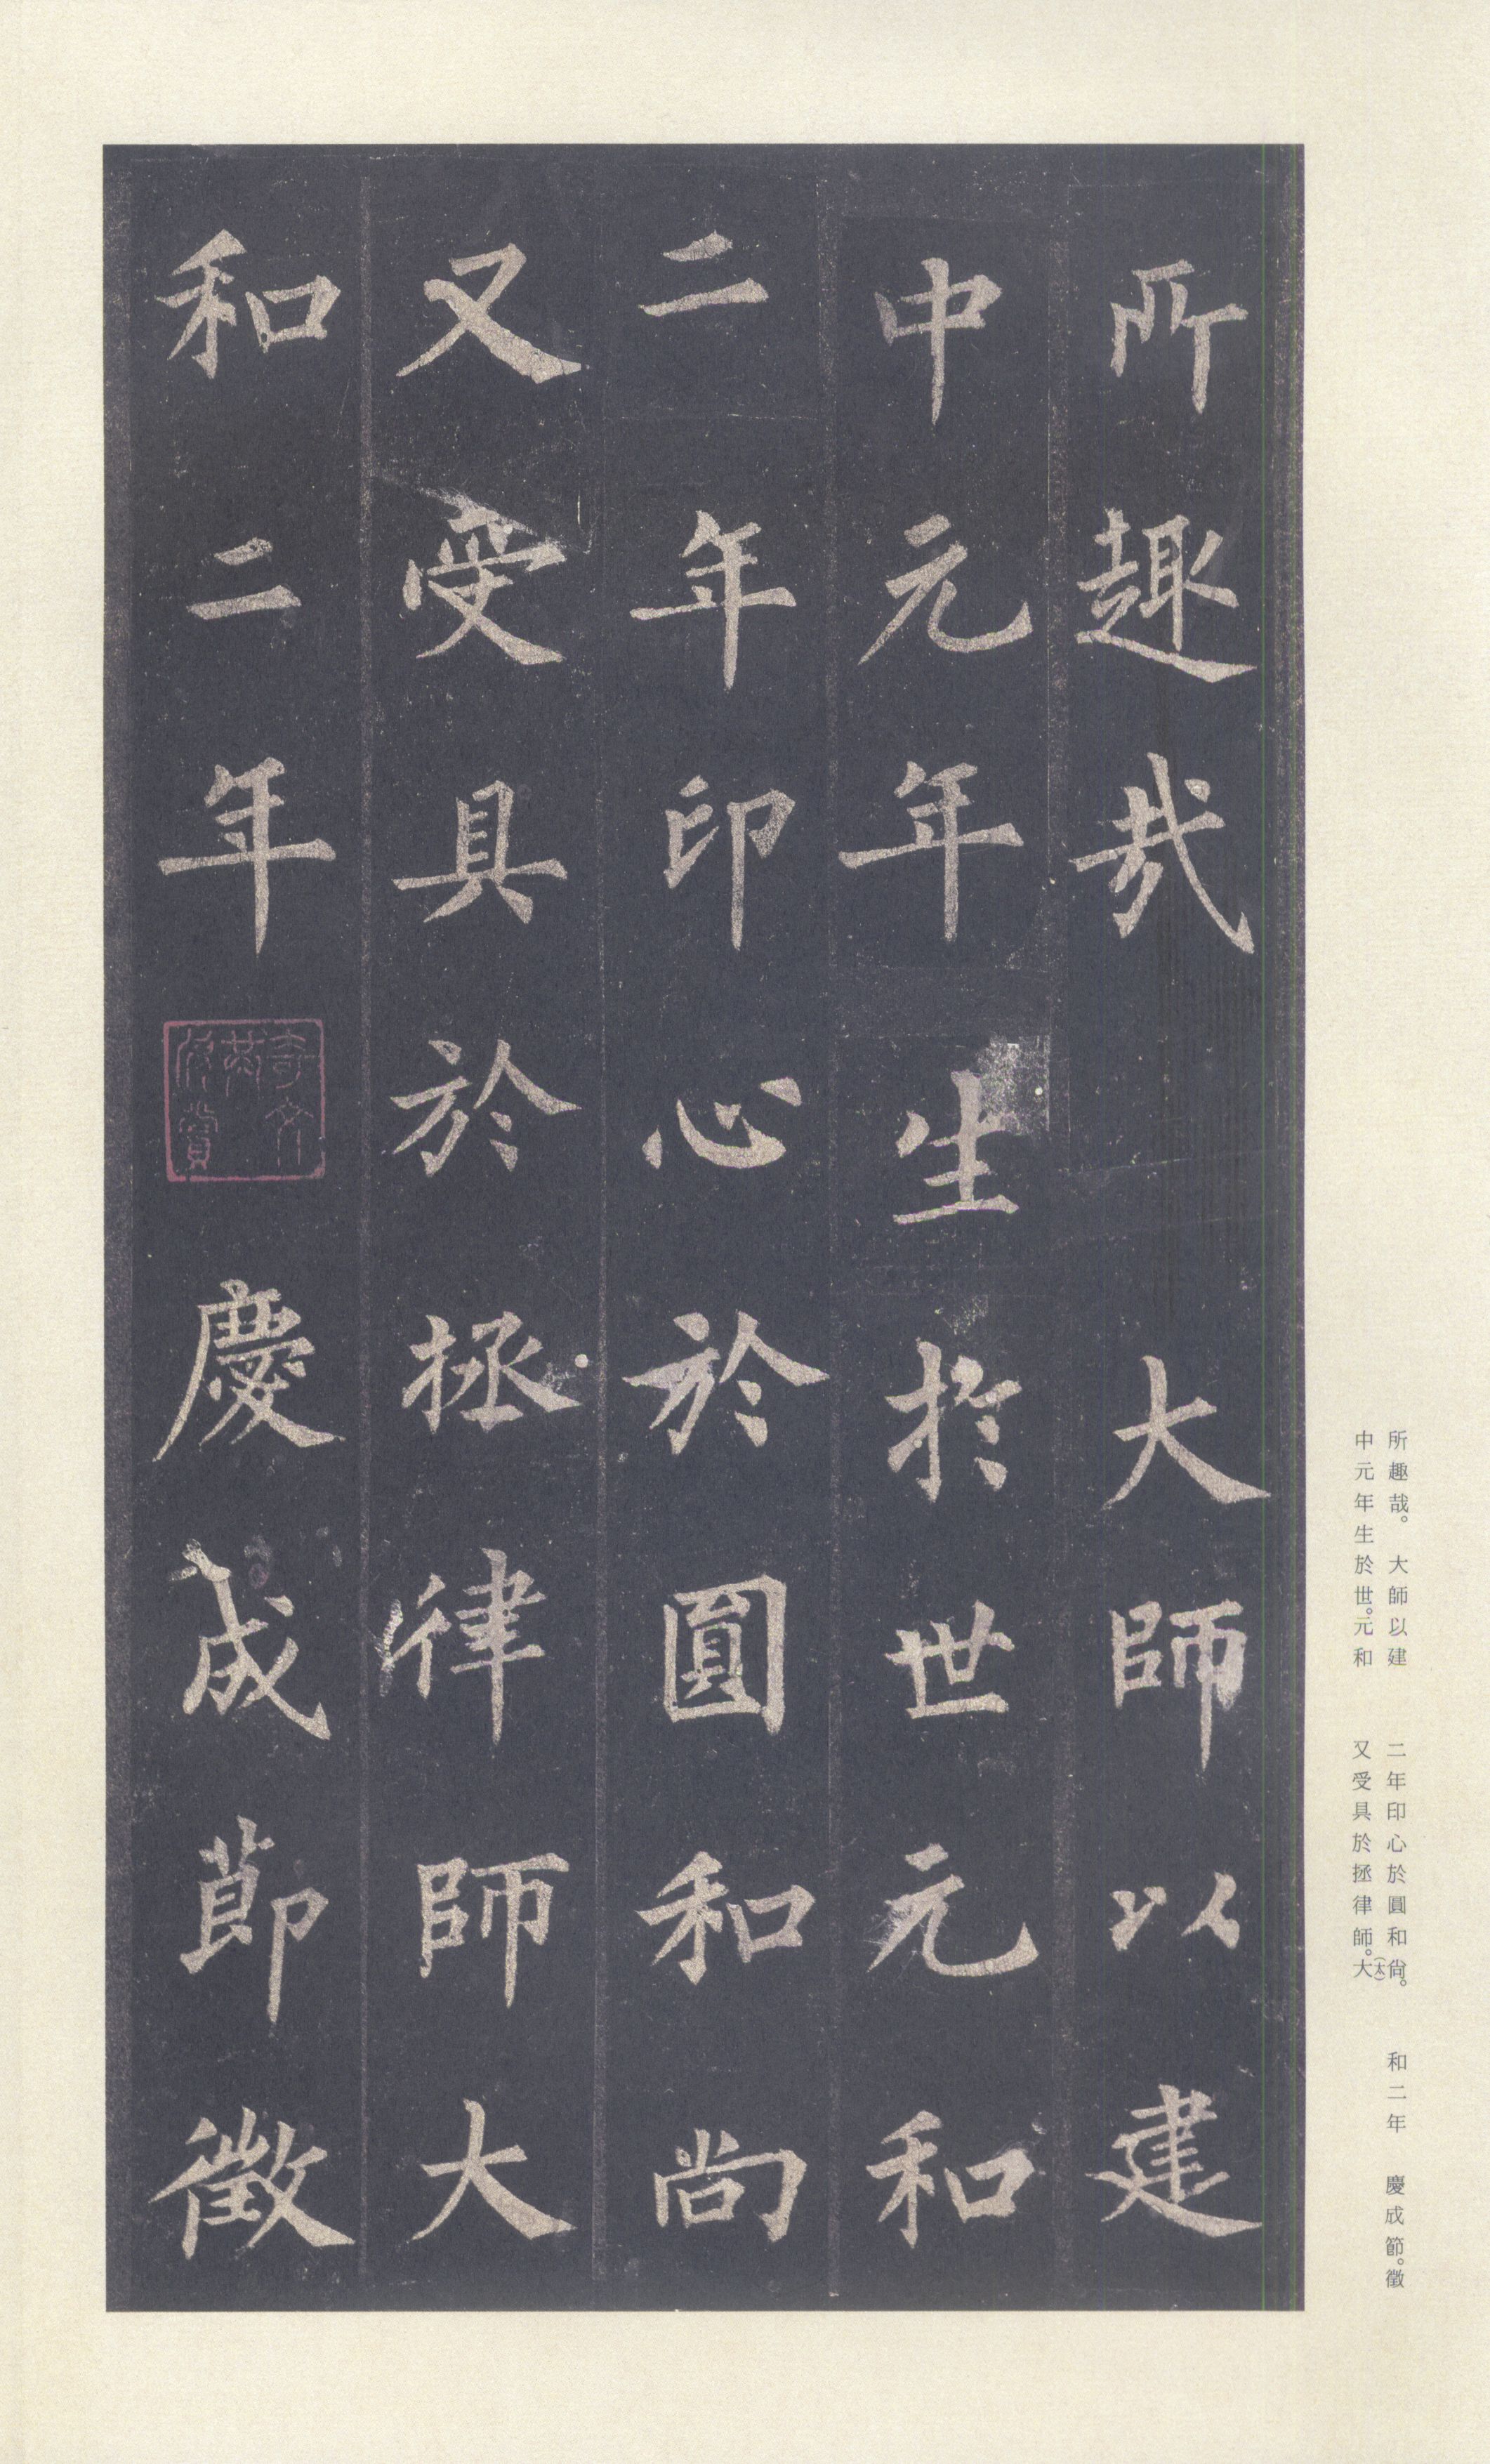 所趣哉　大師以建
中元年生於世元和
二年印心於圓和尚
又受具於拯律師大
和二年　慶成節徵
奇文共欣賞
所趣哉。　大師以建
中元年生於世。元和
二年印心於圓和尙。
又受具於拯律師。大(太)
和二年　慶成節。徵